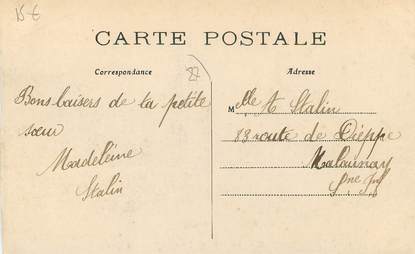 15 €
CARTE POSTALE
Correspondance
27
Adresse
Bons baisers de ta petite
sœur
Madeleine
Stalin
Melle A Stalin
83 route de Dieppe
Malaunay
Sne Infre